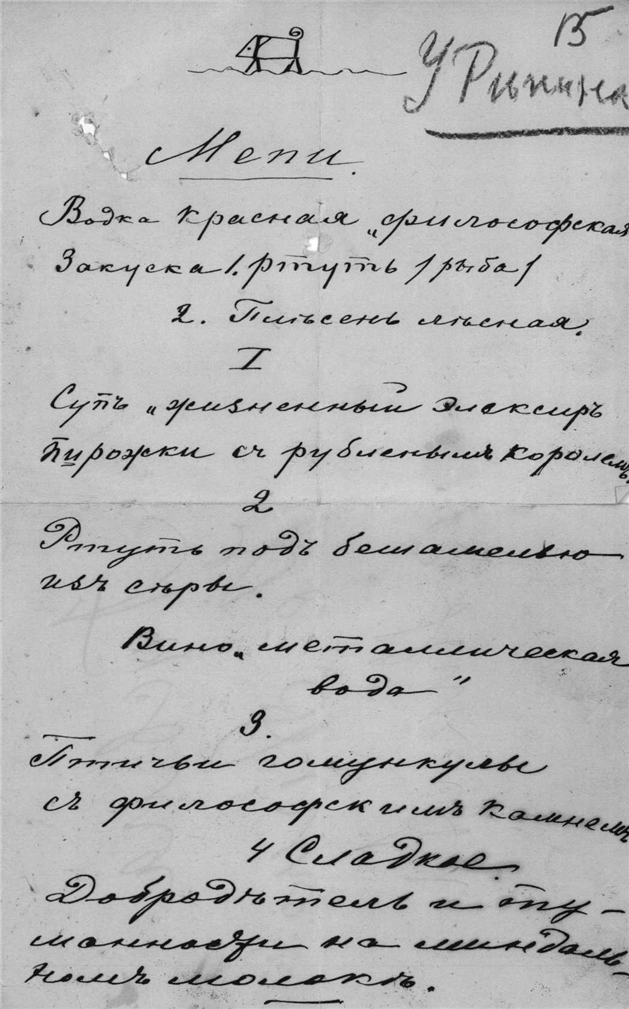 15
У Рипина
Мепи.
Водка красная „философская
Закуска 1. ртуть /рыба/
2. Плѣсень лѣсная.
I
Супъ „жизненный элексиръ
Пирожки съ рубленымъ королемъ.
2
Ртуть подъ бешамелью
изъ сѣры.
Вино „металлическая
вода"
3.
Птичьи гомункулы
съ философскимъ камнемъ
4 Сладкое.
Добродѣтель и ту-
манности на миндаль-
номъ молокѣ.